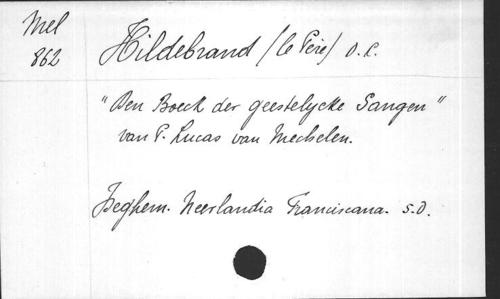 Mel
862
Hildebrand (le Père) O.C.
"Den Boeck der geestelycke Sangen"
van P. Lucas van Mechelen.
Iseghem. Neerlandia Franciscana. S.D.